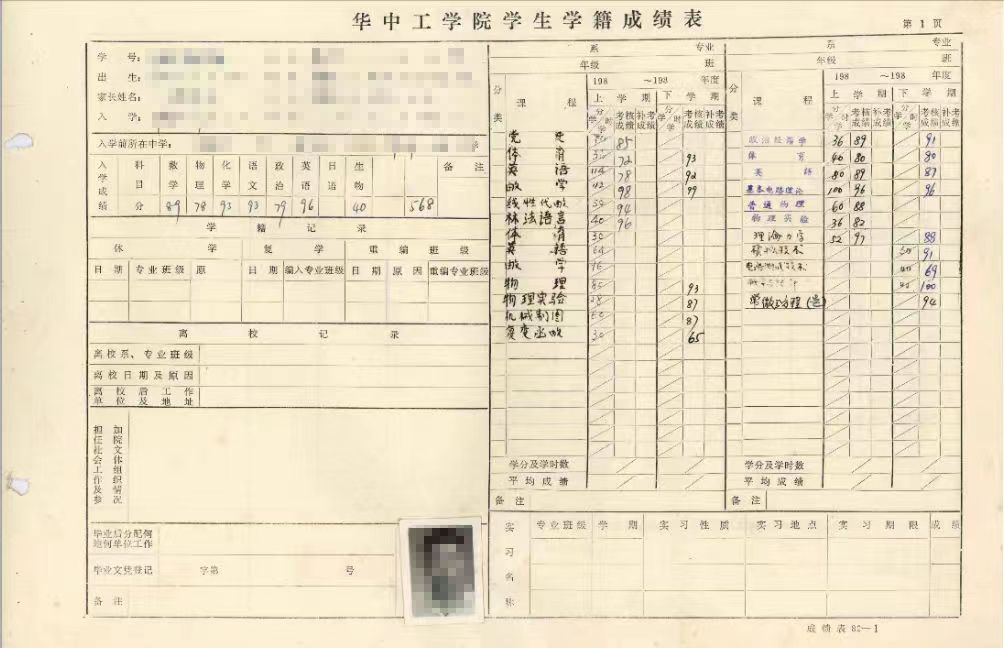 华中工学院学生学籍成绩表
第1页
学号:
出生:
家长姓名:
入学:
入学前所在中学:
入学成绩
科目 数学 物理 化学 语文 政治 英语 日语 生物 备注
分 89 78 93 93 79 96 40 568
学籍记录
休学 复学 重编班级
日期 专业班级 原 日期 编入专业班级 日期 原因 重编专业班级
离校记录
离校系、专业班级
离校日期及原因
离校后工作单位及地址
担任社会工作及参加院文体组织情况
毕业后分配何地何单位工作
毕业文凭登记 字第 号
备注
系 专业
年级 班
198 ~198 年度
分类 课程 上学期 下学期
学分/学时 考核成绩 补考成绩 学分/学时 考核成绩 补考成绩
党史 85
体育 72 93
英语 78 92
数学 98 99
线性代数 94
算法语言 40 96
体育 30
英语
数学 96
物理 93
物理实验 87
机械制图 87
复变函数 65
学分及学时数
平均成绩
备注
系 专业
年级 班
198 ~198 年度
分类 课程 上学期 下学期
学分/学时 考核成绩 补考成绩 学分/学时 考核成绩 补考成绩
政治经济学 36 89 91
体育 40 80 80
英语 80 89 87
基本电路理论 100 96 96
普通物理 60 88
物理实验 36 82
理论力学 52 97 88
模拟技术 91
电路测试技术 69
100
常微分方程(选) 94
学分及学时数
平均成绩
备注
实习名称 专业班级 学期 实习性质 实习地点 实习期限 成绩
成绩表82—1